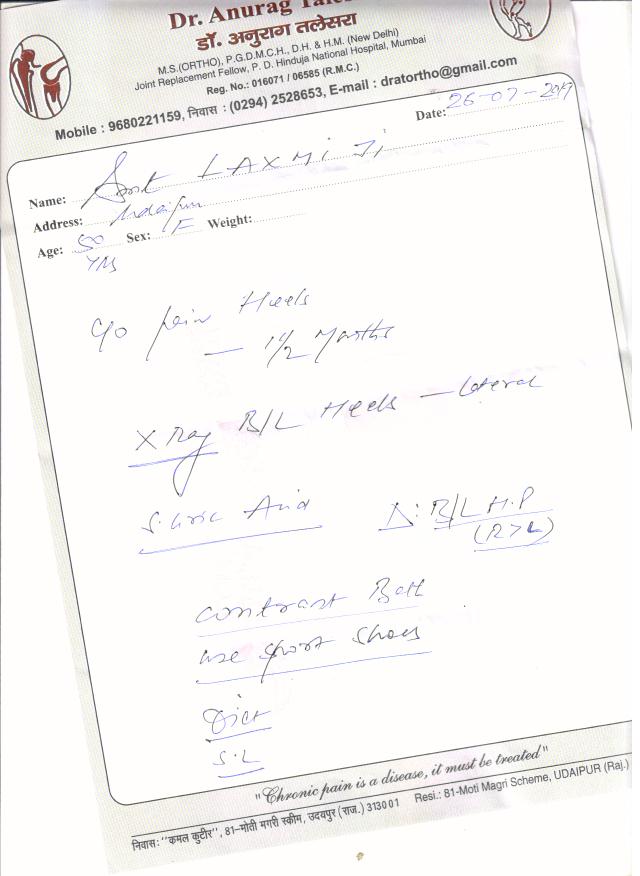 Dr. Anurag
डॉ. अनुराग तलेसरा
M.S.(ORTHO), P.G.D.M.C.H., D.H. & H.M. (New Delhi)
Joint Replacement Fellow, P. D. Hinduja National Hospital, Mumbai
Reg. No.: 016071 / 06585 (R.M.C.)
Mobile : 9680221159, निवास : (0294) 2528653, E-mail : dratortho@gmail.com
Date: 26-07-2017
Name: Smt LAXMI JI
Address: Udaipur
Age: 50 Sex: F Weight:
YRS
C/o pain Heels
— 1 1/2 Months
X Ray B/L Heels — lateral
S. Uric Acid Δ: B/L H.P
(R>L)
Contrast Bath
use sport shoes
Diet
S.L
"Chronic pain is a disease, it must be treated"
निवास: "कमल कुटीर", 81-मोती मगरी स्कीम, उदयपुर (राज.) 313001 Resi.: 81-Moti Magri Scheme, UDAIPUR (Raj.)